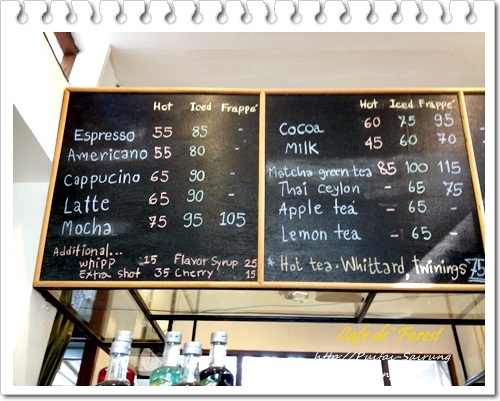 Hot Iced Frappe'
Espresso 55 85 -
Americano 55 80 -
Cappucino 65 90 -
Latte 65 90 -
Mocha 75 95 105
Additional...
whipp 15 Flavor Syrup 25
Extra shot 35 Cherry 15
Hot Iced Frappe'
Cocoa 60 75 95
Milk 45 60 70
Matcha green tea 85 100 115
Thai ceylon - 65 75
Apple tea - 65 -
Lemon tea - 65 -
* Hot tea - Whittard, Twinings 75
Cafe de' Forest
http://Puitai-Sairung